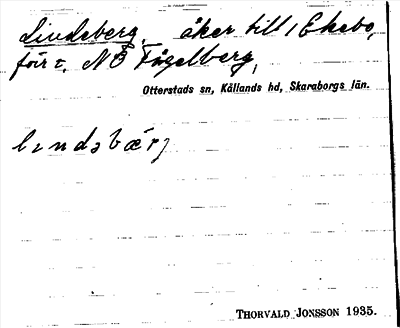 Lindeberg, åker till 1 Ekebo,
förr t. NB Fågelberg,
Otterstads sn, Kållands hd, Skaraborgs län.
Thorvald Jonsson 1935.